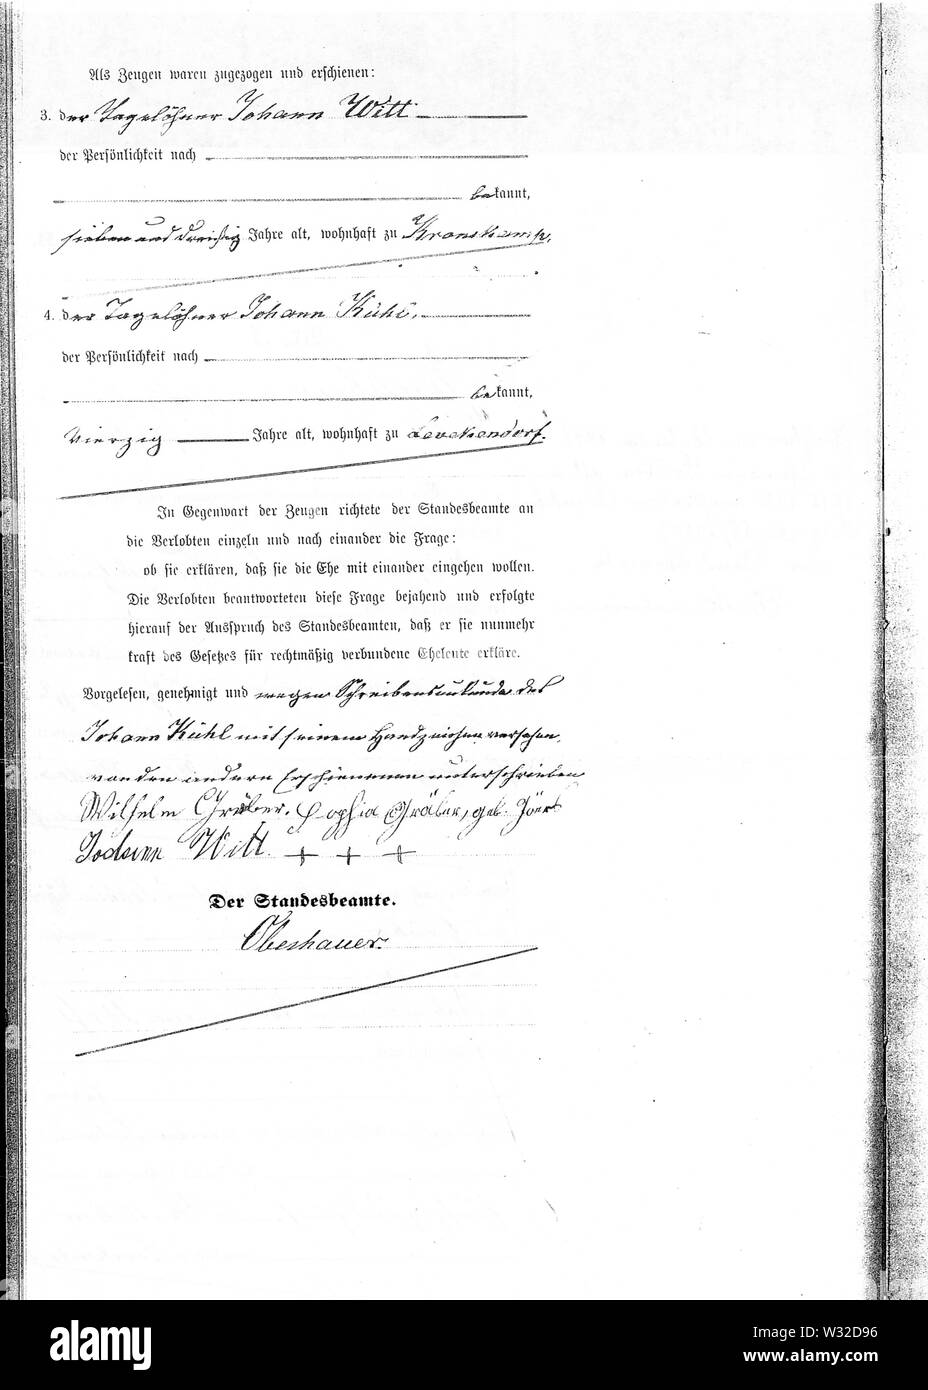 Als Zeugen waren zugezogen und erschienen:
3. der Tagelöhner Johann Witt
der Persönlichkeit nach
bekannt,
sieben und dreißig Jahre alt, wohnhaft zu Kronskamp,
4. der Tagelöhner Johann Kühl,
der Persönlichkeit nach
bekannt,
vierzig Jahre alt, wohnhaft zu Levekendorf.
In Gegenwart der Zeugen richtete der Standesbeamte an
die Verlobten einzeln und nach einander die Frage:
ob sie erklären, daß sie die Ehe mit einander eingehen wollen.
Die Verlobten beantworteten diese Frage bejahend und erfolgte
hierauf der Ausspruch des Standesbeamten, daß er sie nunmehr
kraft des Gesetzes für rechtmäßig verbundene Eheleute erkläre.
Vorgelesen, genehmigt und wegen Schreibensunkunde des
Johann Kühl mit seinem Handzeichen versehen,
von den andern Erschienenen unterschrieben
Wilhelm Gräber. Sophia Gräber, geb.
Johann Witt. + + +
Der Standesbeamte.
alamy
Image ID: W32D96
www.alamy.com